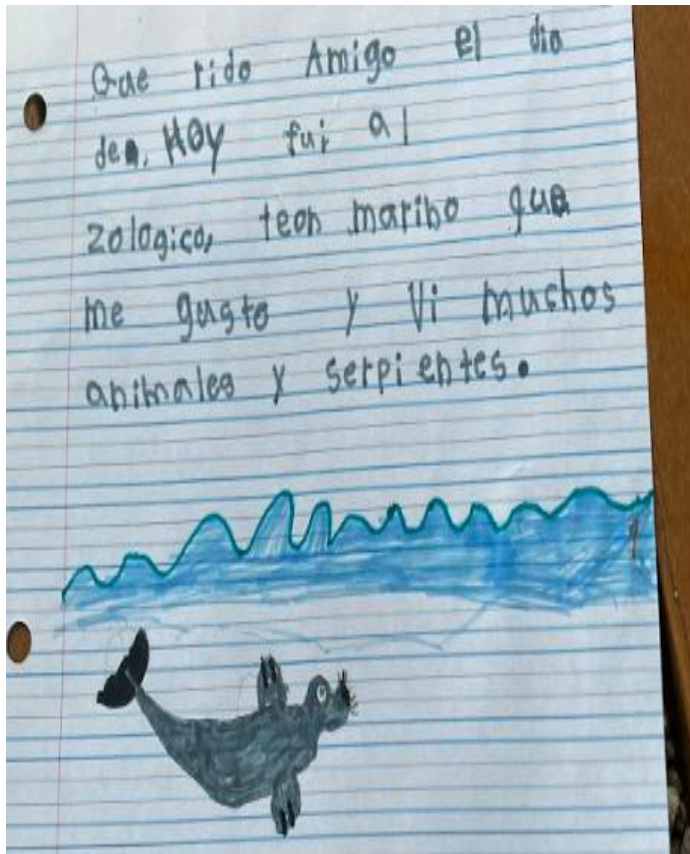 Que rido Amigo el dia
de, Hoy fui al
zologico, teon marino que
me gusto y Vi muchos
animales y serpientes.